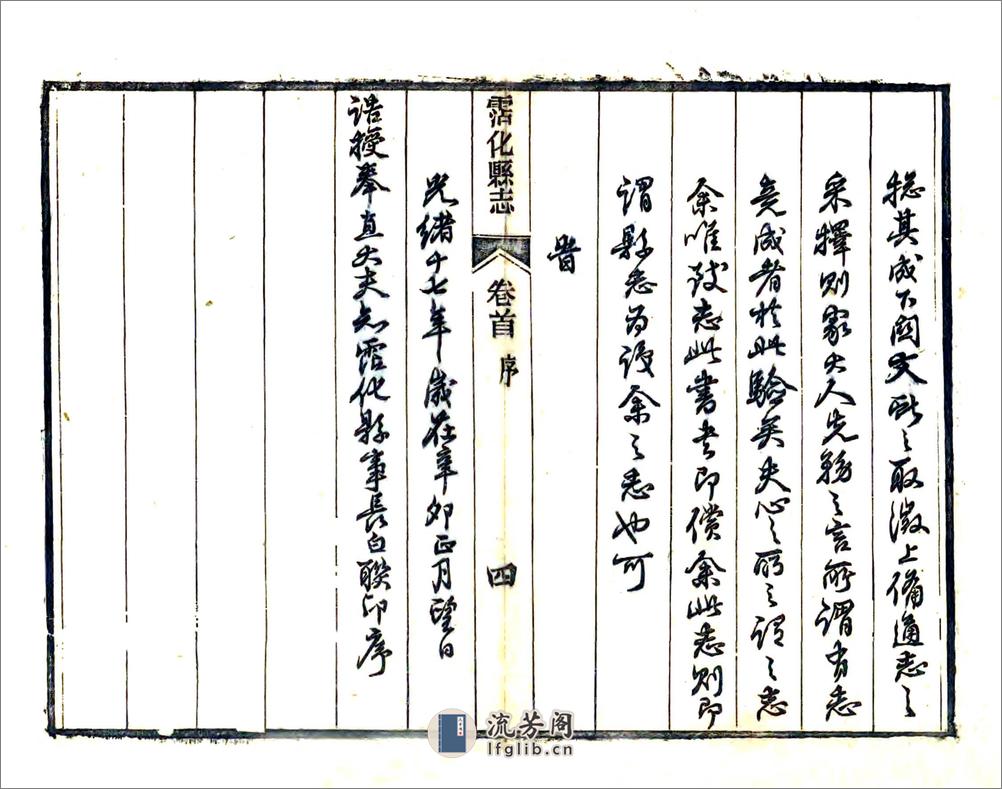 總其成下關文獻之取徵上備通志之
采擇則家大人先務之言所謂有志
竟成者於此驗矣夫心之所之謂之志
余唯致志此書者即償余此志則即
謂縣志為設余之志也可
旹
霑化縣志 卷首 序 四
光緒十七年歲在辛卯正月望日
誥授奉直大夫知霑化縣事長白聯印序
流芳阁
lfglib.cn